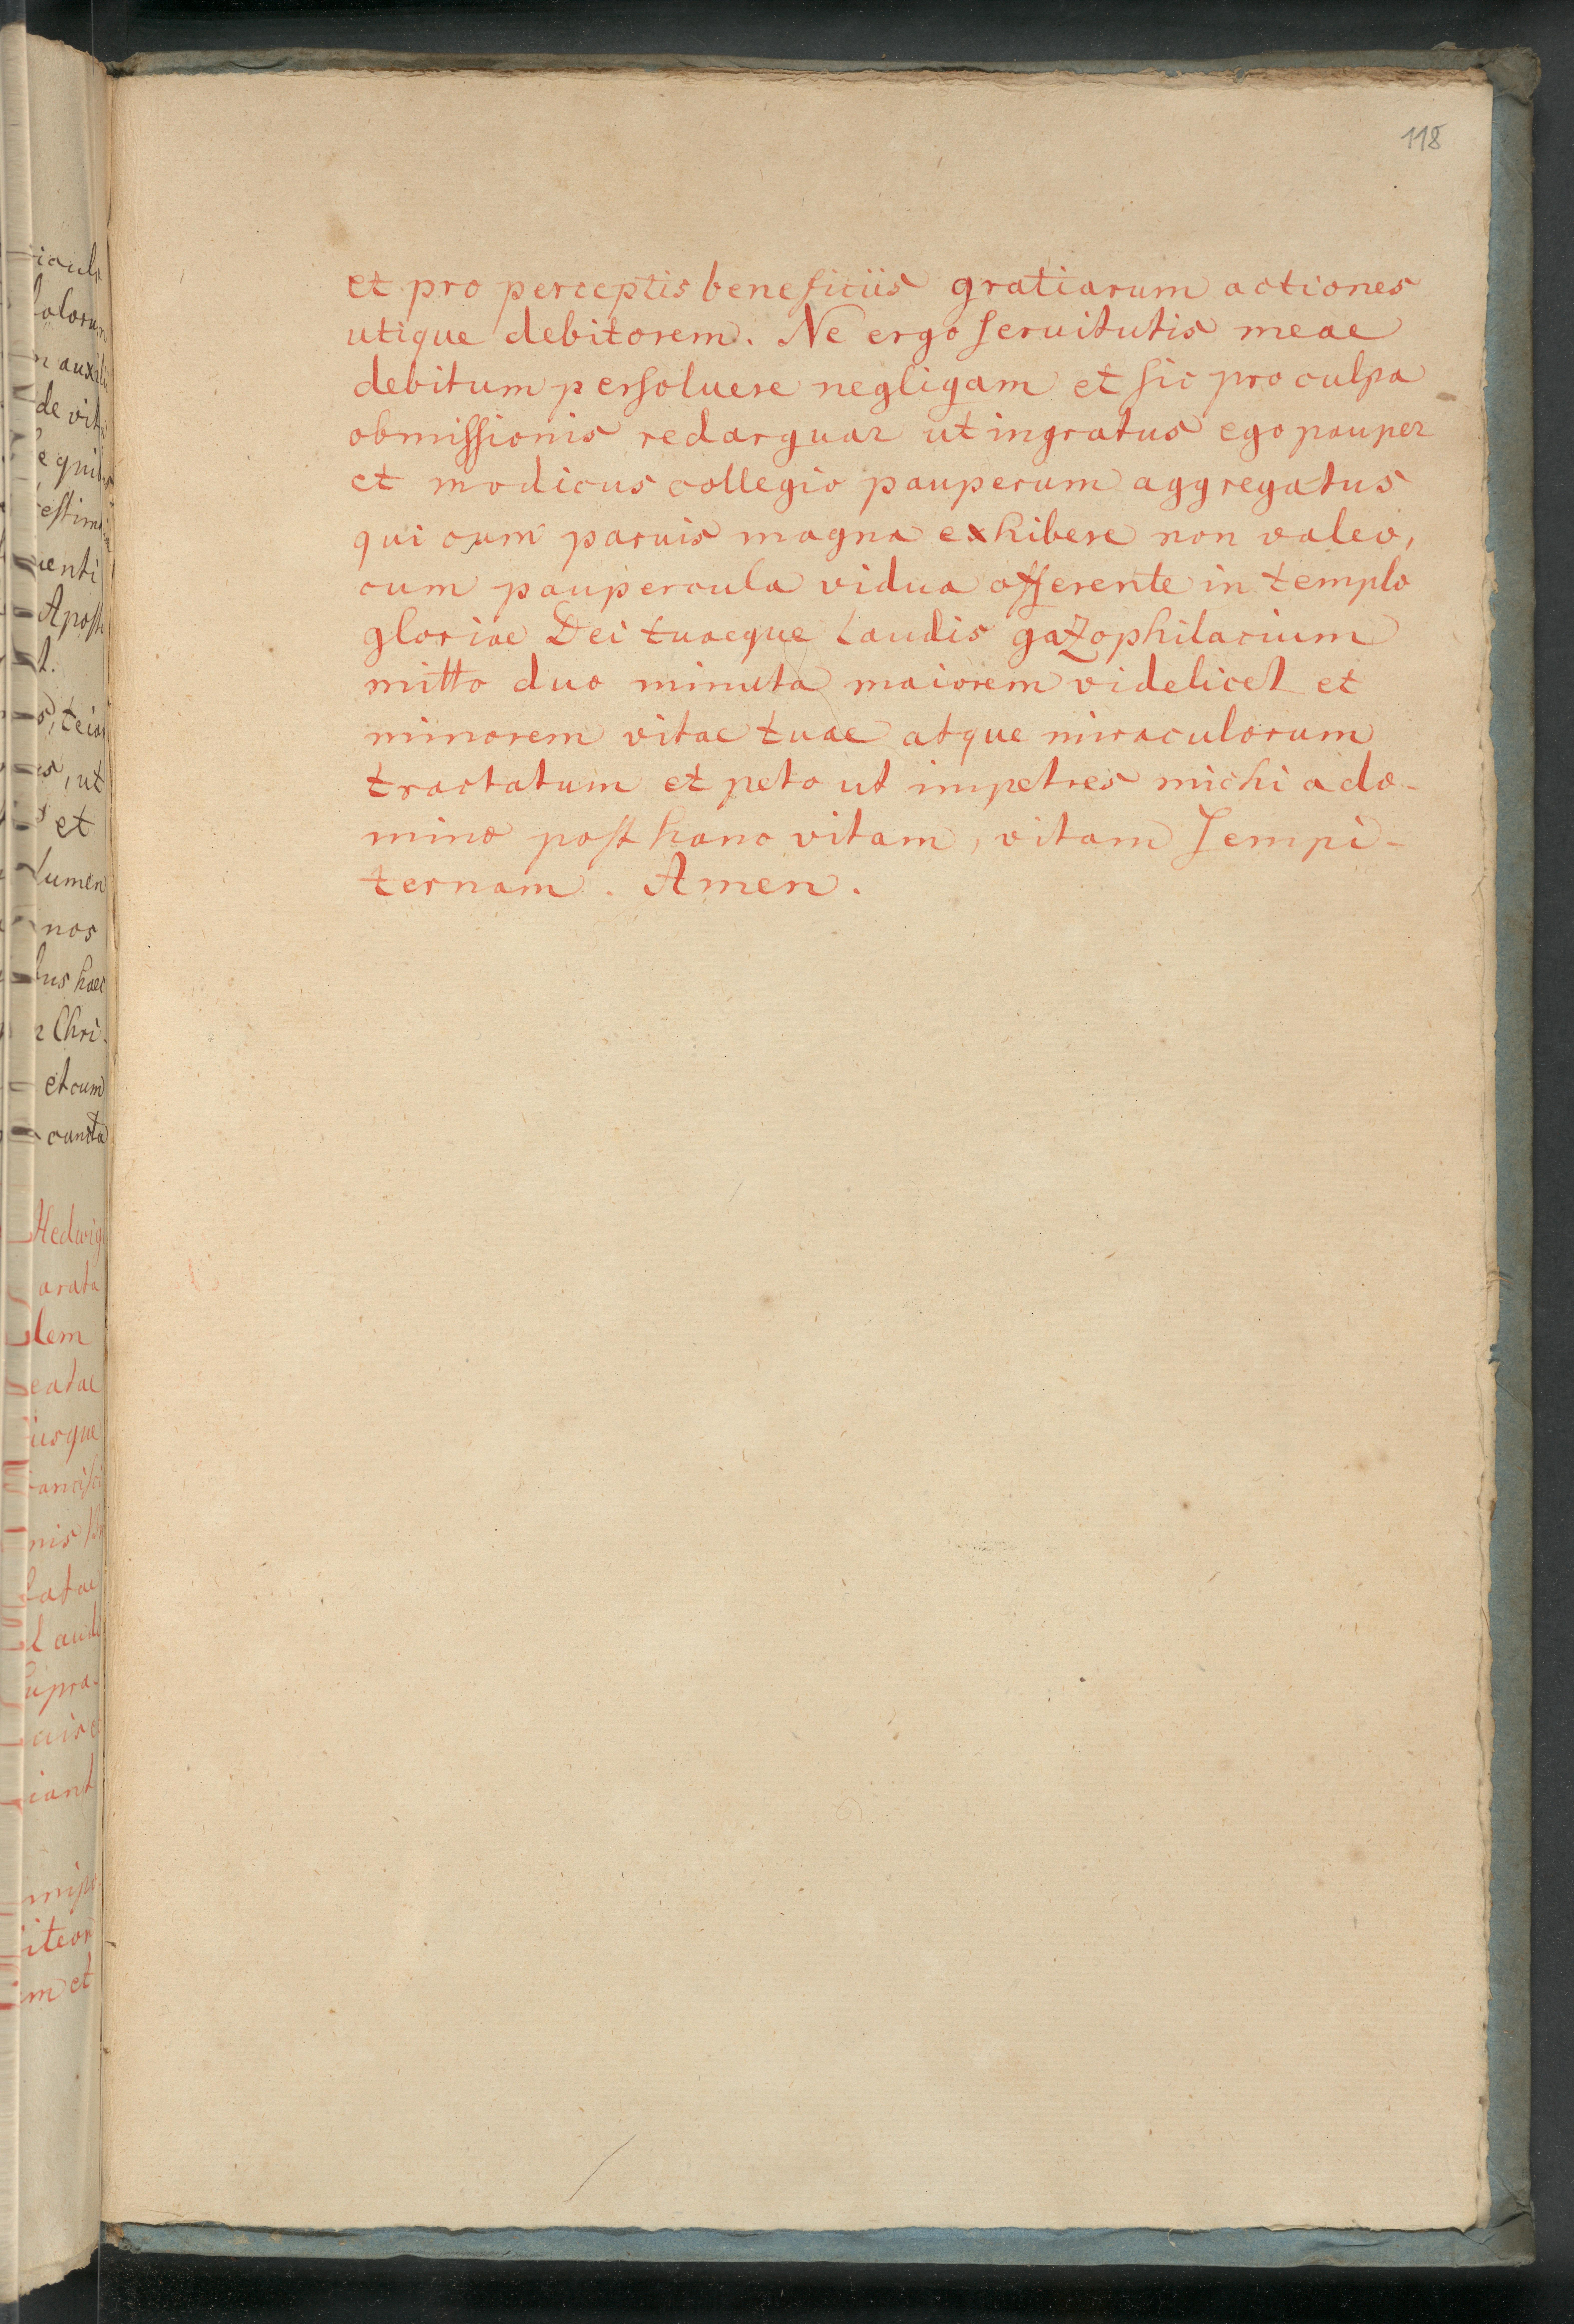 118
et pro perceptis beneficiis gratiarum actiones
utique debitorem. Ne ergo ſeruitutis meae
debitum perſoluere negligam et ſic pro culpa
obmiſſionis redarguar ut ingratus ego pauper
et modicus collegio pauperum aggregatus
qui cum paruis magna exhibere non valeo,
cum paupercula vidua offerente in templo
gloriae Dei tuaeque laudis gaZophilacium
mitto duo minuta maiorem videlicet et
minorem vitae tuae atque miraculorum
tractatum et peto ut impetres michi a do-
mino poſt hanc vitam, vitam ſempi-
ternam. Amen.
de vit
enti
ut
et
lumen
nos
bus haec
Chri-
et cum
cuncta
Hedwigi
arata
lem
eatae
usque
batae
ſupra-
iant
iteor
m et